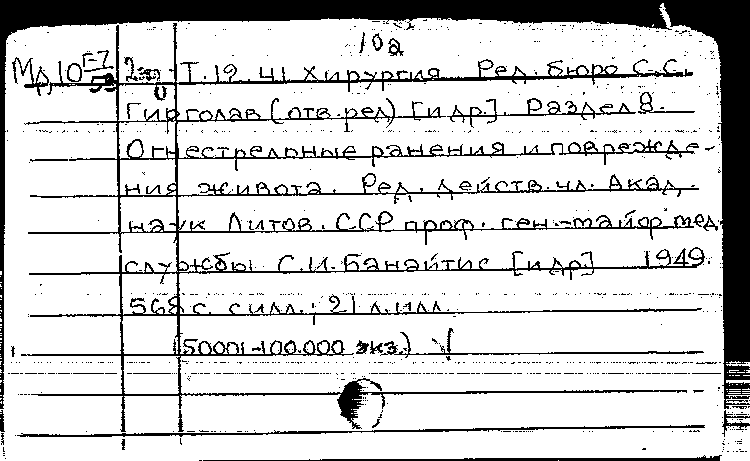 10а
Мр10 Г-7 Т. 12. Ч1 Хирургия. Ред. бюро С.С.
53
Гирголав (отв. ред) [и др]. Раздел 8.
Огнестрельные ранения и поврежде-
ния живота. Ред. действ. чл. Акад.
наук Литов. ССР проф. ген-майор мед.
службы С.И. Банайтис [и др] 1949.
568 с. с илл.; 21 л. илл.
(50001-100.000 экз.) √